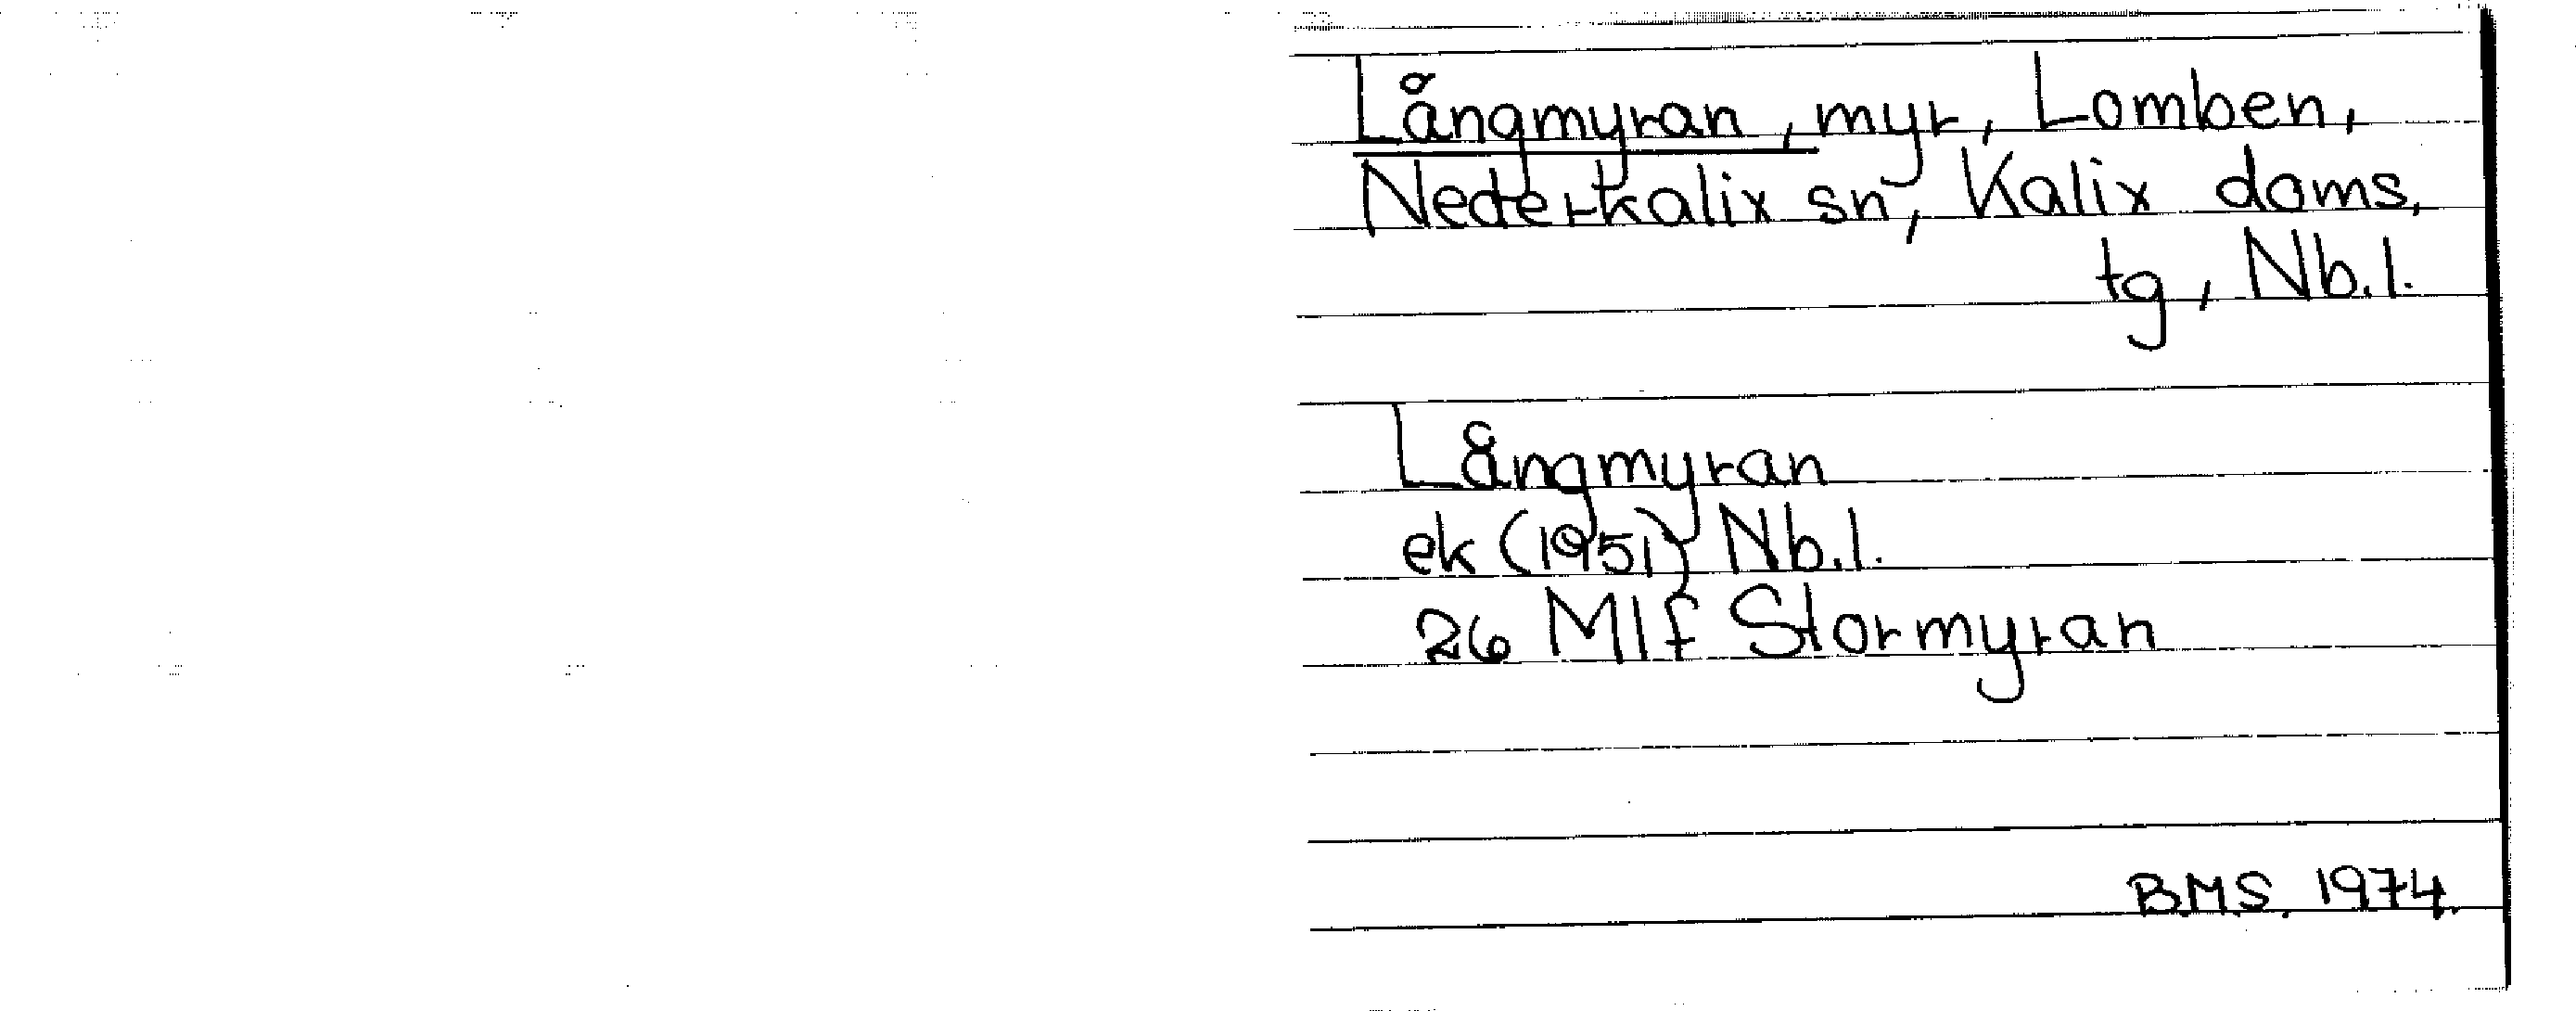 Långmyran, myr, Lomben,
Nederkalix sn, Kalix doms.
tg, Nb.l.
Långmyran
ek (1951) Nb.l.
26 Mlf Stormyran
B.M.S. 1974.